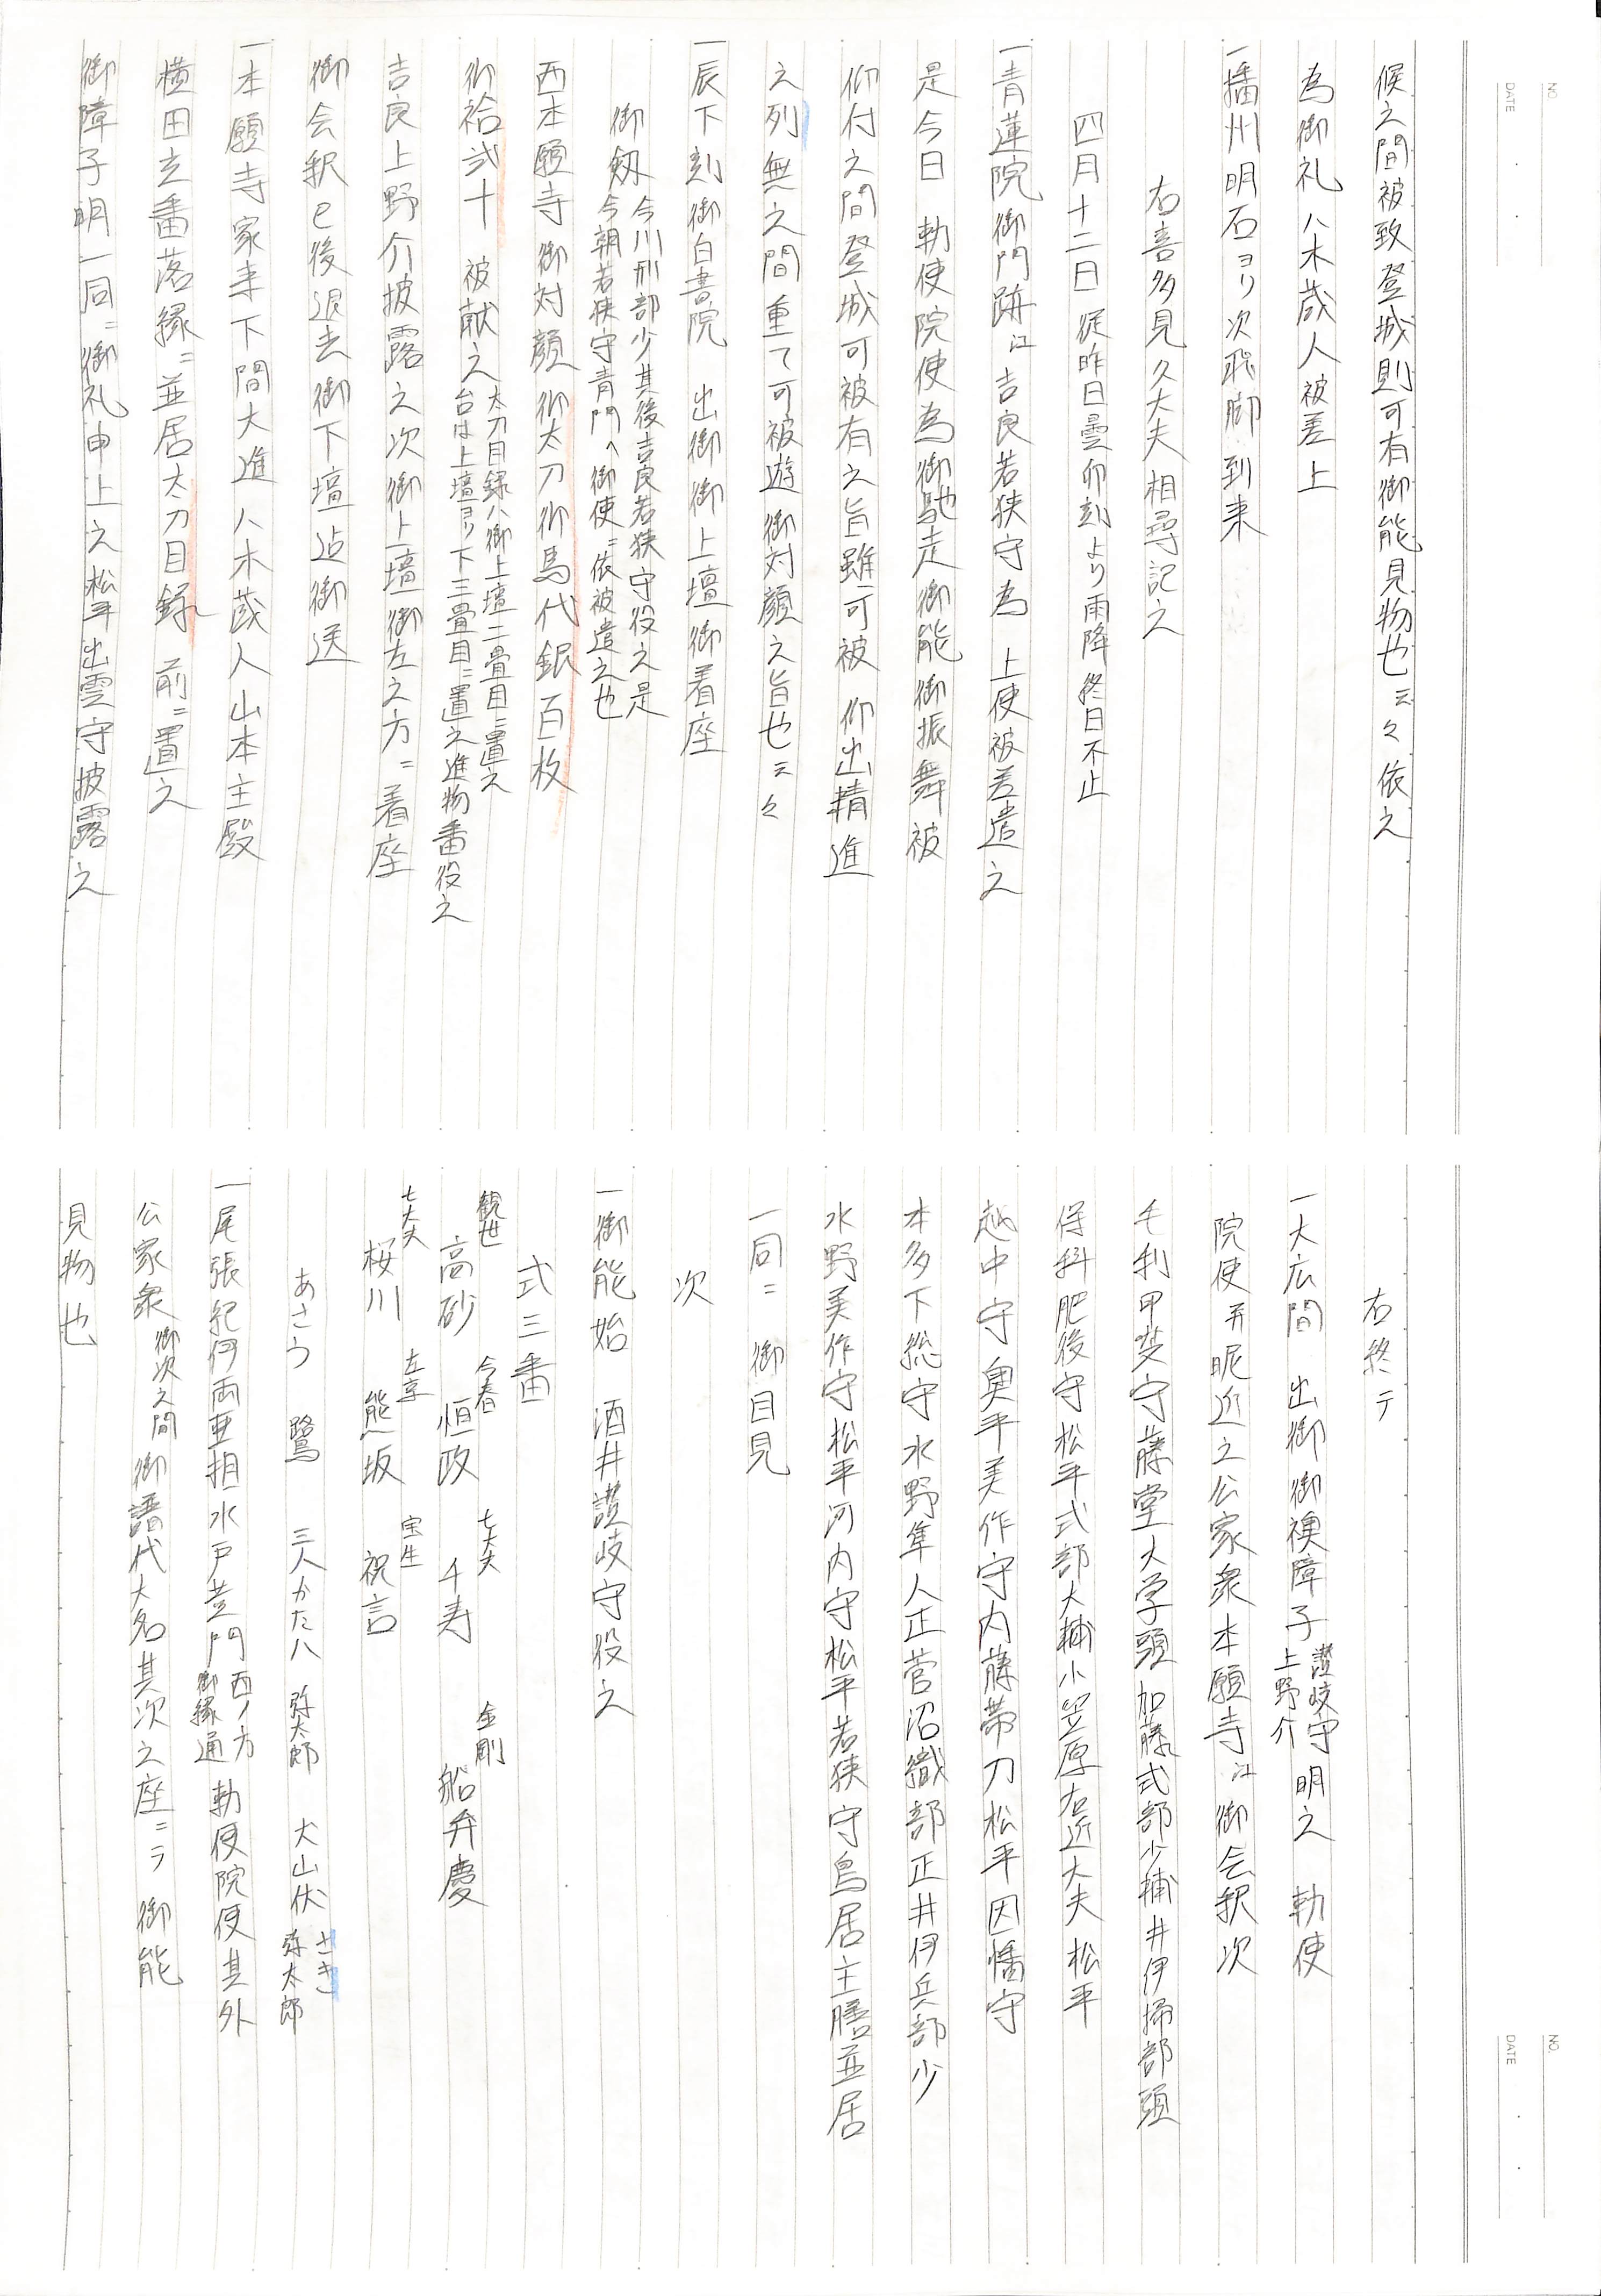 NO.
DATE
候之間被致登城則可有御能見物也云々依之
為御礼八木蔵人被差上
一播州明石ヨリ次飛脚到来
右喜多見久大夫相尋記之
四月十二日 従昨日曇卯刻より雨降終日不止
一青蓮院御門跡江吉良若狭守為 上使被差遣之
是今日 勅使院使為御馳走御能御振舞被
仰付之間登城可被有之旨雖可被 仰出精進
之列無之間重て可被遊御対顔之旨也云々
一辰下刻御白書院 出御御上壇御着座
御劔 今川刑部少其後吉良若狭守役之是
今朝若狭守青門へ御使ニ依被遣之也
西本願寺御対顔御太刀御馬代銀百枚
御袷弐十 被献之 太刀目録ハ御上壇二畳目ニ置之
台は上壇ヨリ下三畳目ニ置之進物番役之
吉良上野介披露之次御上壇御左之方ニ着座
御会釈已後退去御下壇迠御送
一本願寺家来下間大進八木蔵人山本主殿
横田玄番落縁ニ並居太刀目録 前ニ置之
御障子明一同ニ御礼申上之松平出雲守披露之
右終テ
一大広間 出御御襖障子 讃岐守
上野介 明之 勅使
院使并昵近之公家衆本願寺江御会釈次
毛利甲斐守藤堂大学頭加藤式部少輔井伊掃部頭
保科肥後守松平式部大輔小笠原右近大夫松平
越中守奥平美作守内藤帯刀松平因幡守
本多下総守水野隼人正菅沼織部正井伊兵部少
水野美作守松平河内守松平若狭守鳥居主膳並居
一同ニ 御目見
次
一御能始 酒井讃岐守役之
式三番
観世 高砂 今春 恒政 七大夫 千寿 金剛 船弁慶
七大夫 桜川 左京 熊坂 宝生 祝言
あさう 鷺 三人かたハ 弥太郎 大山伏 さき
弥太郎
一尾張紀伊両亜相水戸黄門 西ノ方
御縁通 勅使院使其外
公家衆 御次之間 御譜代大名其次之座ニヲ 御能
見物也
NO.
DATE